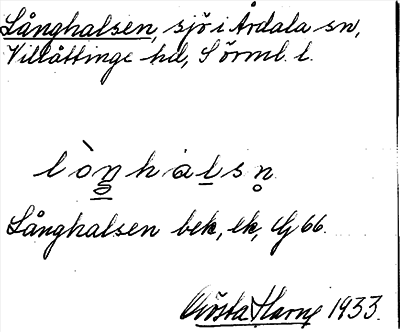 Långhalsen, sjö i Årdala sn,
Villåttinge hd, Sörml. l.
lò̀n̥hàlsn̥
Långhalsen bek, ek, Gj 66.
Gösta Harne 1933.